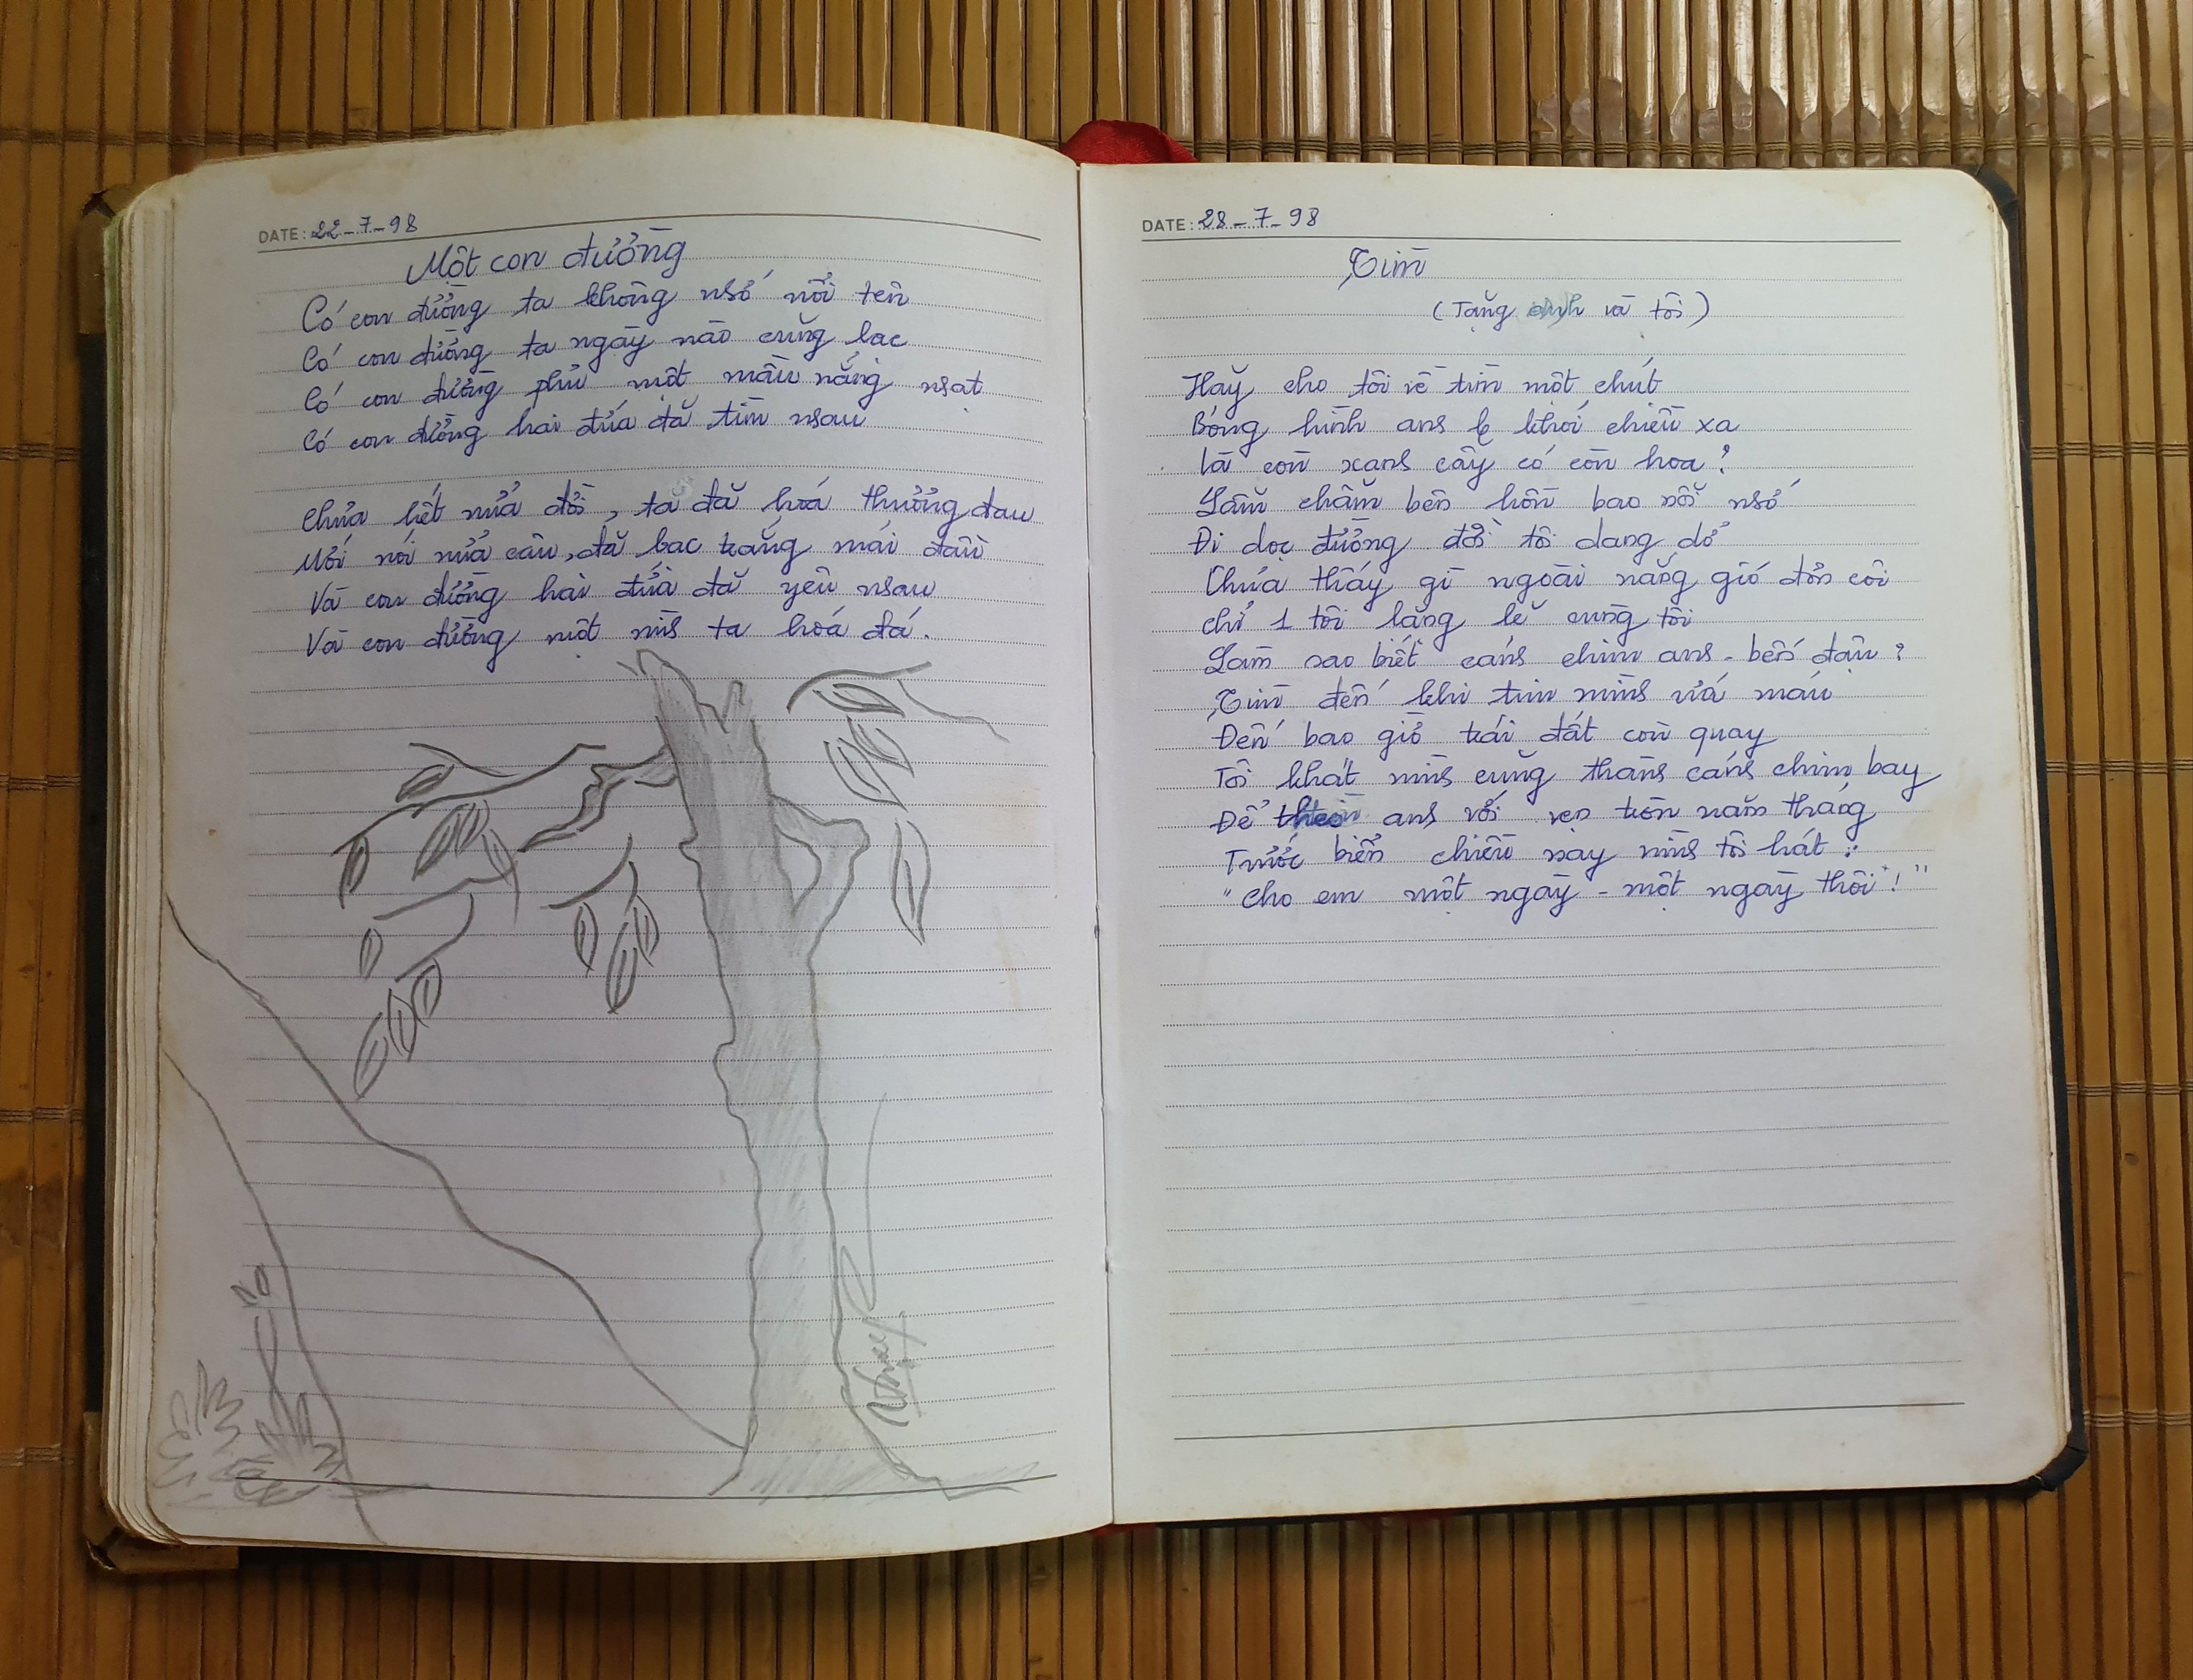 DATE: 22-7-98
Một con đường
Có con đường ta không nhớ nổi tên
Có con đường ta ngày nào cũng lạc
Có con đường phủ một màu nắng nhạt
Có con đường hai đứa đã tìm nhau
Chưa hết nửa đời, ta đã hoá thương đau
Mới nói nửa câu, đã bạc trắng mái đầu
Và con đường hai đứa đã yêu nhau
Và con đường một mình ta hoá đá.
DATE: 28-7-98
Tìm
(Tặng anh và tôi)
Hãy cho tôi về tìm một chút
Bóng hình anh khói chiều xa
Lá còn xanh cây có còn hoa?
Lẫm chẫm bên hồn bao nỗi nhớ
Đi dọc đường đời tôi dang dở
Chưa thấy gì ngoài nắng gió đơn côi
Chỉ 1 tôi lặng lẽ cùng tôi
Làm sao biết cánh chim anh - bến đậu?
Tìm đến khi tim mình ứa máu
Đến bao giờ trái đất còn quay
Tôi khát mình cùng thành cánh chim bay
Để anh với vẹn tròn năm tháng
Trước biển chiều nay mình tôi hát:
"Cho em một ngày - một ngày thôi!"